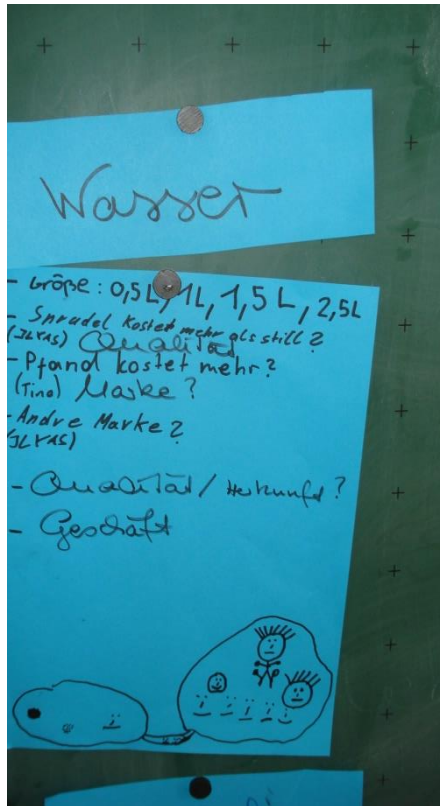 Wasser
- Größe: 0,5L, 1L, 1,5L, 2,5L
- Sprudel kostet mehr als still?
(ILYAS) Qualität
- Pfand kostet mehr?
(Tino) Marke?
- Andre Marke?
(ILYAS)
- Qualität / Herkunft?
- Geschäft